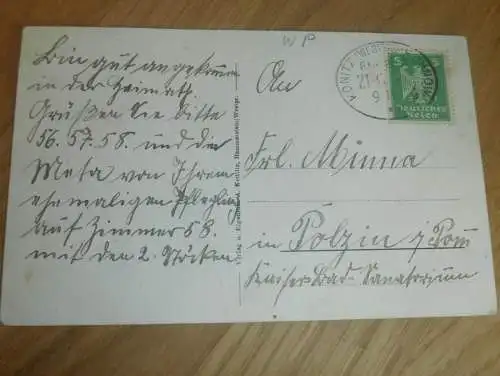 WP
Bin gut angekommen
in der Heimath.
Grüßen Sie bitte
56. 57. 58. und die
Meta von Ihrem
ehemaligen Pflegling
Auf Zimmer 58.
mit den 2. Stöcken
An
Frl. Minna
in Polzin i/Pom
Kaiser-Bad-Sanatorium
KONITZ
21
9
5 5
Deutsches
Reich